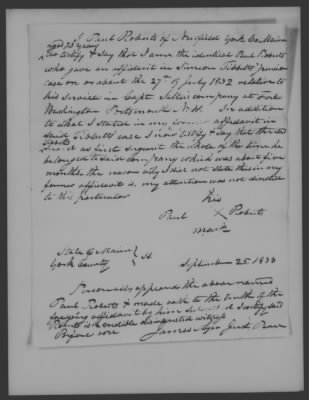 I Paul Roberts of Newfield York Co. Maine
aged 73 years
do certify & say that I am the identical Paul Roberts
who gave an affidavit in Simeon Tibbetts' pension
case on or about the 27th of July 1832 relation to
his service in Capt. company at Fort
Washington Portsmouth N.H. In addition
to what I stated in my former affidavit in
said Tibbetts case I now testify & say that the said
Tibbetts
served as first Sergeant the whole of the time he
belonged to said company which was about five
months. the reason why I did not state this in my
former affidavit is, my attention was not directed
to this particular
his
Paul X Roberts
mark
State of Maine
York County } ss
September 25. 1833
Personally appeared the above named
Paul Roberts & made oath to the truth of the
foregoing affidavit by him subscribed & I certify said
Roberts is a credible disinterested witness
Before me James Ayer Just. Peace